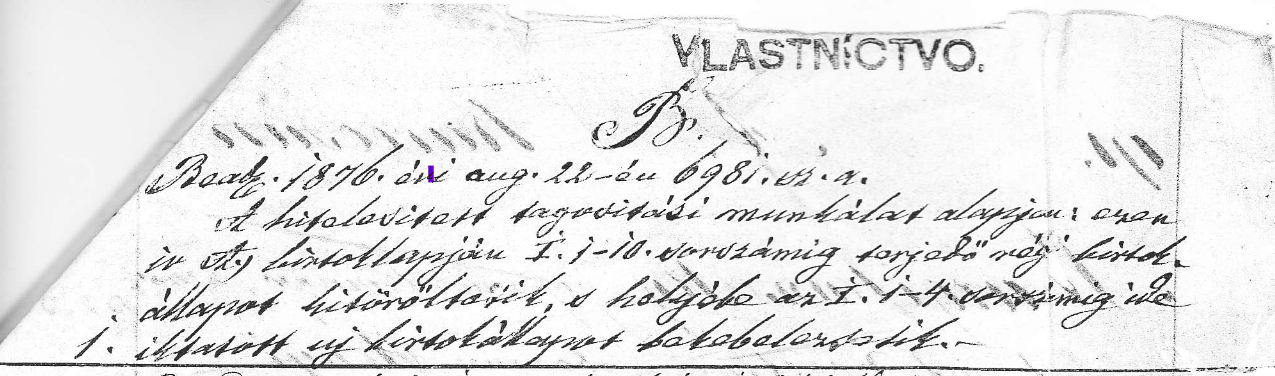 VLASTNÍCTVO.
B.
Beadt. 1876. évi aug. 22-én 6981. sz. a.
A hitelesített tagosítási munkálat alapján: ezen
ív A) birtoklapján I. 1-10. sorszámig terjedő régi birtok-
állapot kitöröltetik, s helyébe az I. 1-4. sorszámig ide
1. iktatott uj birtokállapot bekebeleztetik.-